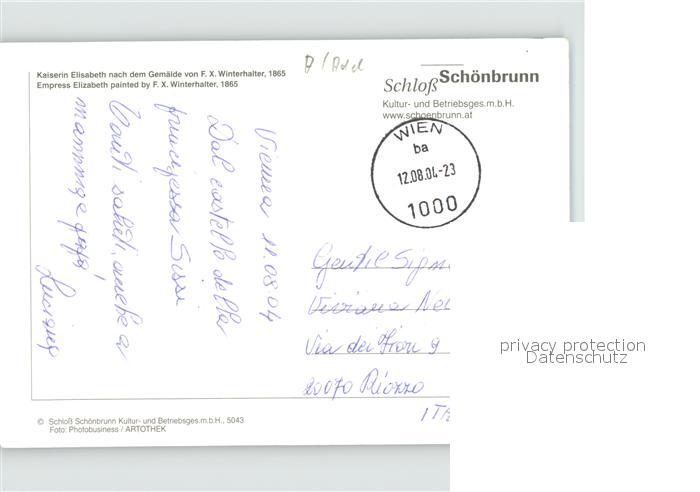 Kaiserin Elisabeth nach dem Gemälde von F. X. Winterhalter, 1865
Empress Elizabeth painted by F. X. Winterhalter, 1865
Schloß Schönbrunn
Kultur- und Betriebsges.m.b.H.
www.schoenbrunn.at
WIEN
ba
12.08.04-23
1000
Vienna 11.08.04
Dal castello della
principessa Sissi
tanti saluti, anche a
mamma e papà
Luciana
Gentil Sign
Viviana
Via dei 9
20070 Riozzo
ITA
privacy protection
Datenschutz
© Schloß Schönbrunn Kultur- und Betriebsges.m.b.H., 5043
Foto: Photobusiness / ARTOTHEK